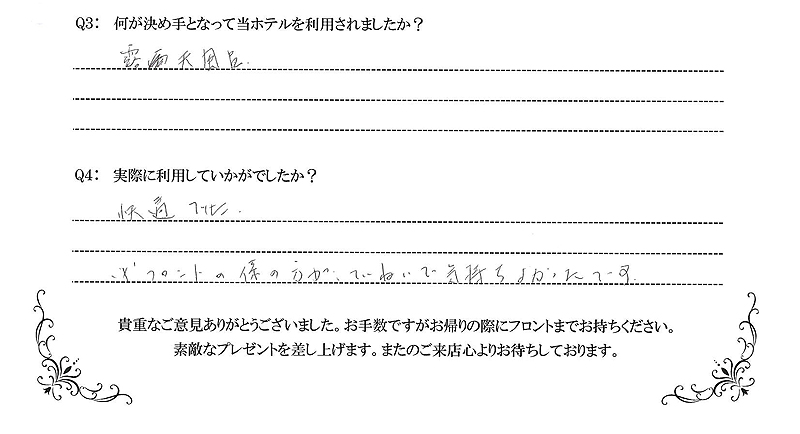 Q3: 何が決め手となって当ホテルを利用されましたか？
露
Q4: 実際に利用していかがでしたか？
快適でした.
フロントの係の方が、ていねいで気持ちよかったです.
貴重なご意見ありがとうございました。お手数ですがお帰りの際にフロントまでお持ちください。
素敵なプレゼントを差し上げます。またのご来店心よりお待ちしております。